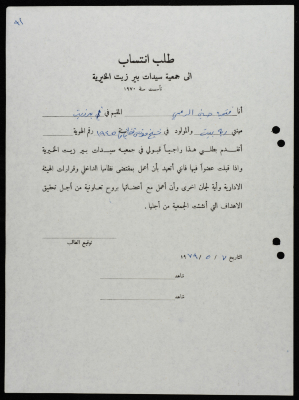 طلب انتساب
الى جمعية سيدات بير زيت الخيرية
تأسست سنة ١٩٧٠
أنا المقيم في
مهنتي والمولود في سنة ١٩٤٥ رقم الهوية
أتقدم بطلبي هذا راجياً قبولي في جمعية سيدات بير زيت الخيرية
واذا قبلت عضواً فيها فاني أتعهد بأن أعمل بمقتضى نظامها الداخلي وقرارات الهيئة
الادارية وأية لجان اخرى وأن أعمل مع أعضائها بروح تعاونية من أجل تحقيق
الاهداف التي أنشئت الجمعية من أجلها .
توقيع الطالب
التاريخ ٧ / ٥ / ١٩٧٩
شاهد
شاهد